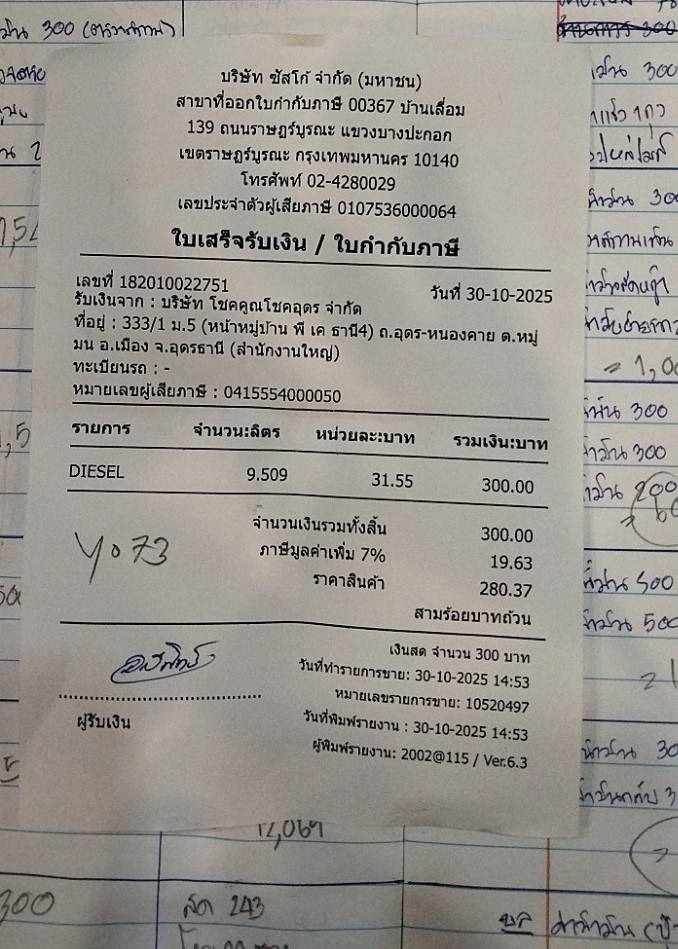 น 300
บริษัท ซัสโก้ จำกัด (มหาชน)
สาขาที่ออกใบกำกับภาษี 00367 บ้านเลื่อม
139 ถนนราษฎร์บูรณะ แขวงบางปะกอก
เขตราษฎร์บูรณะ กรุงเทพมหานคร 10140
โทรศัพท์ 02-4280029
เลขประจำตัวผู้เสียภาษี 0107536000064
ใบเสร็จรับเงิน / ใบกำกับภาษี
เลขที่ 182010022751
วันที่ 30-10-2025
รับเงินจาก : บริษัท โชคคูณโชคอุดร จำกัด
ที่อยู่ : 333/1 ม.5 (หน้าหมู่บ้าน พี เค ธานี4) ถ.อุดร-หนองคาย ต.หมู
มน อ.เมือง จ.อุดรธานี (สำนักงานใหญ่)
ทะเบียนรถ : -
หมายเลขผู้เสียภาษี : 0415554000050
รายการ จำนวน:ลิตร หน่วยละ:บาท รวมเงิน:บาท
DIESEL 9.509 31.55 300.00
จำนวนเงินรวมทั้งสิ้น 300.00
ภาษีมูลค่าเพิ่ม 7% 19.63
ราคาสินค้า 280.37
สามร้อยบาทถ้วน
4073
เงินสด จำนวน 300 บาท
วันที่ทำรายการขาย: 30-10-2025 14:53
หมายเลขรายการขาย: 10520497
วันที่พิมพ์รายงาน : 30-10-2025 14:53
ผู้พิมพ์รายงาน: 2002@115 / Ver.6.3
ผู้รับเงิน
300
300
200
500
12,069
300
สด 243